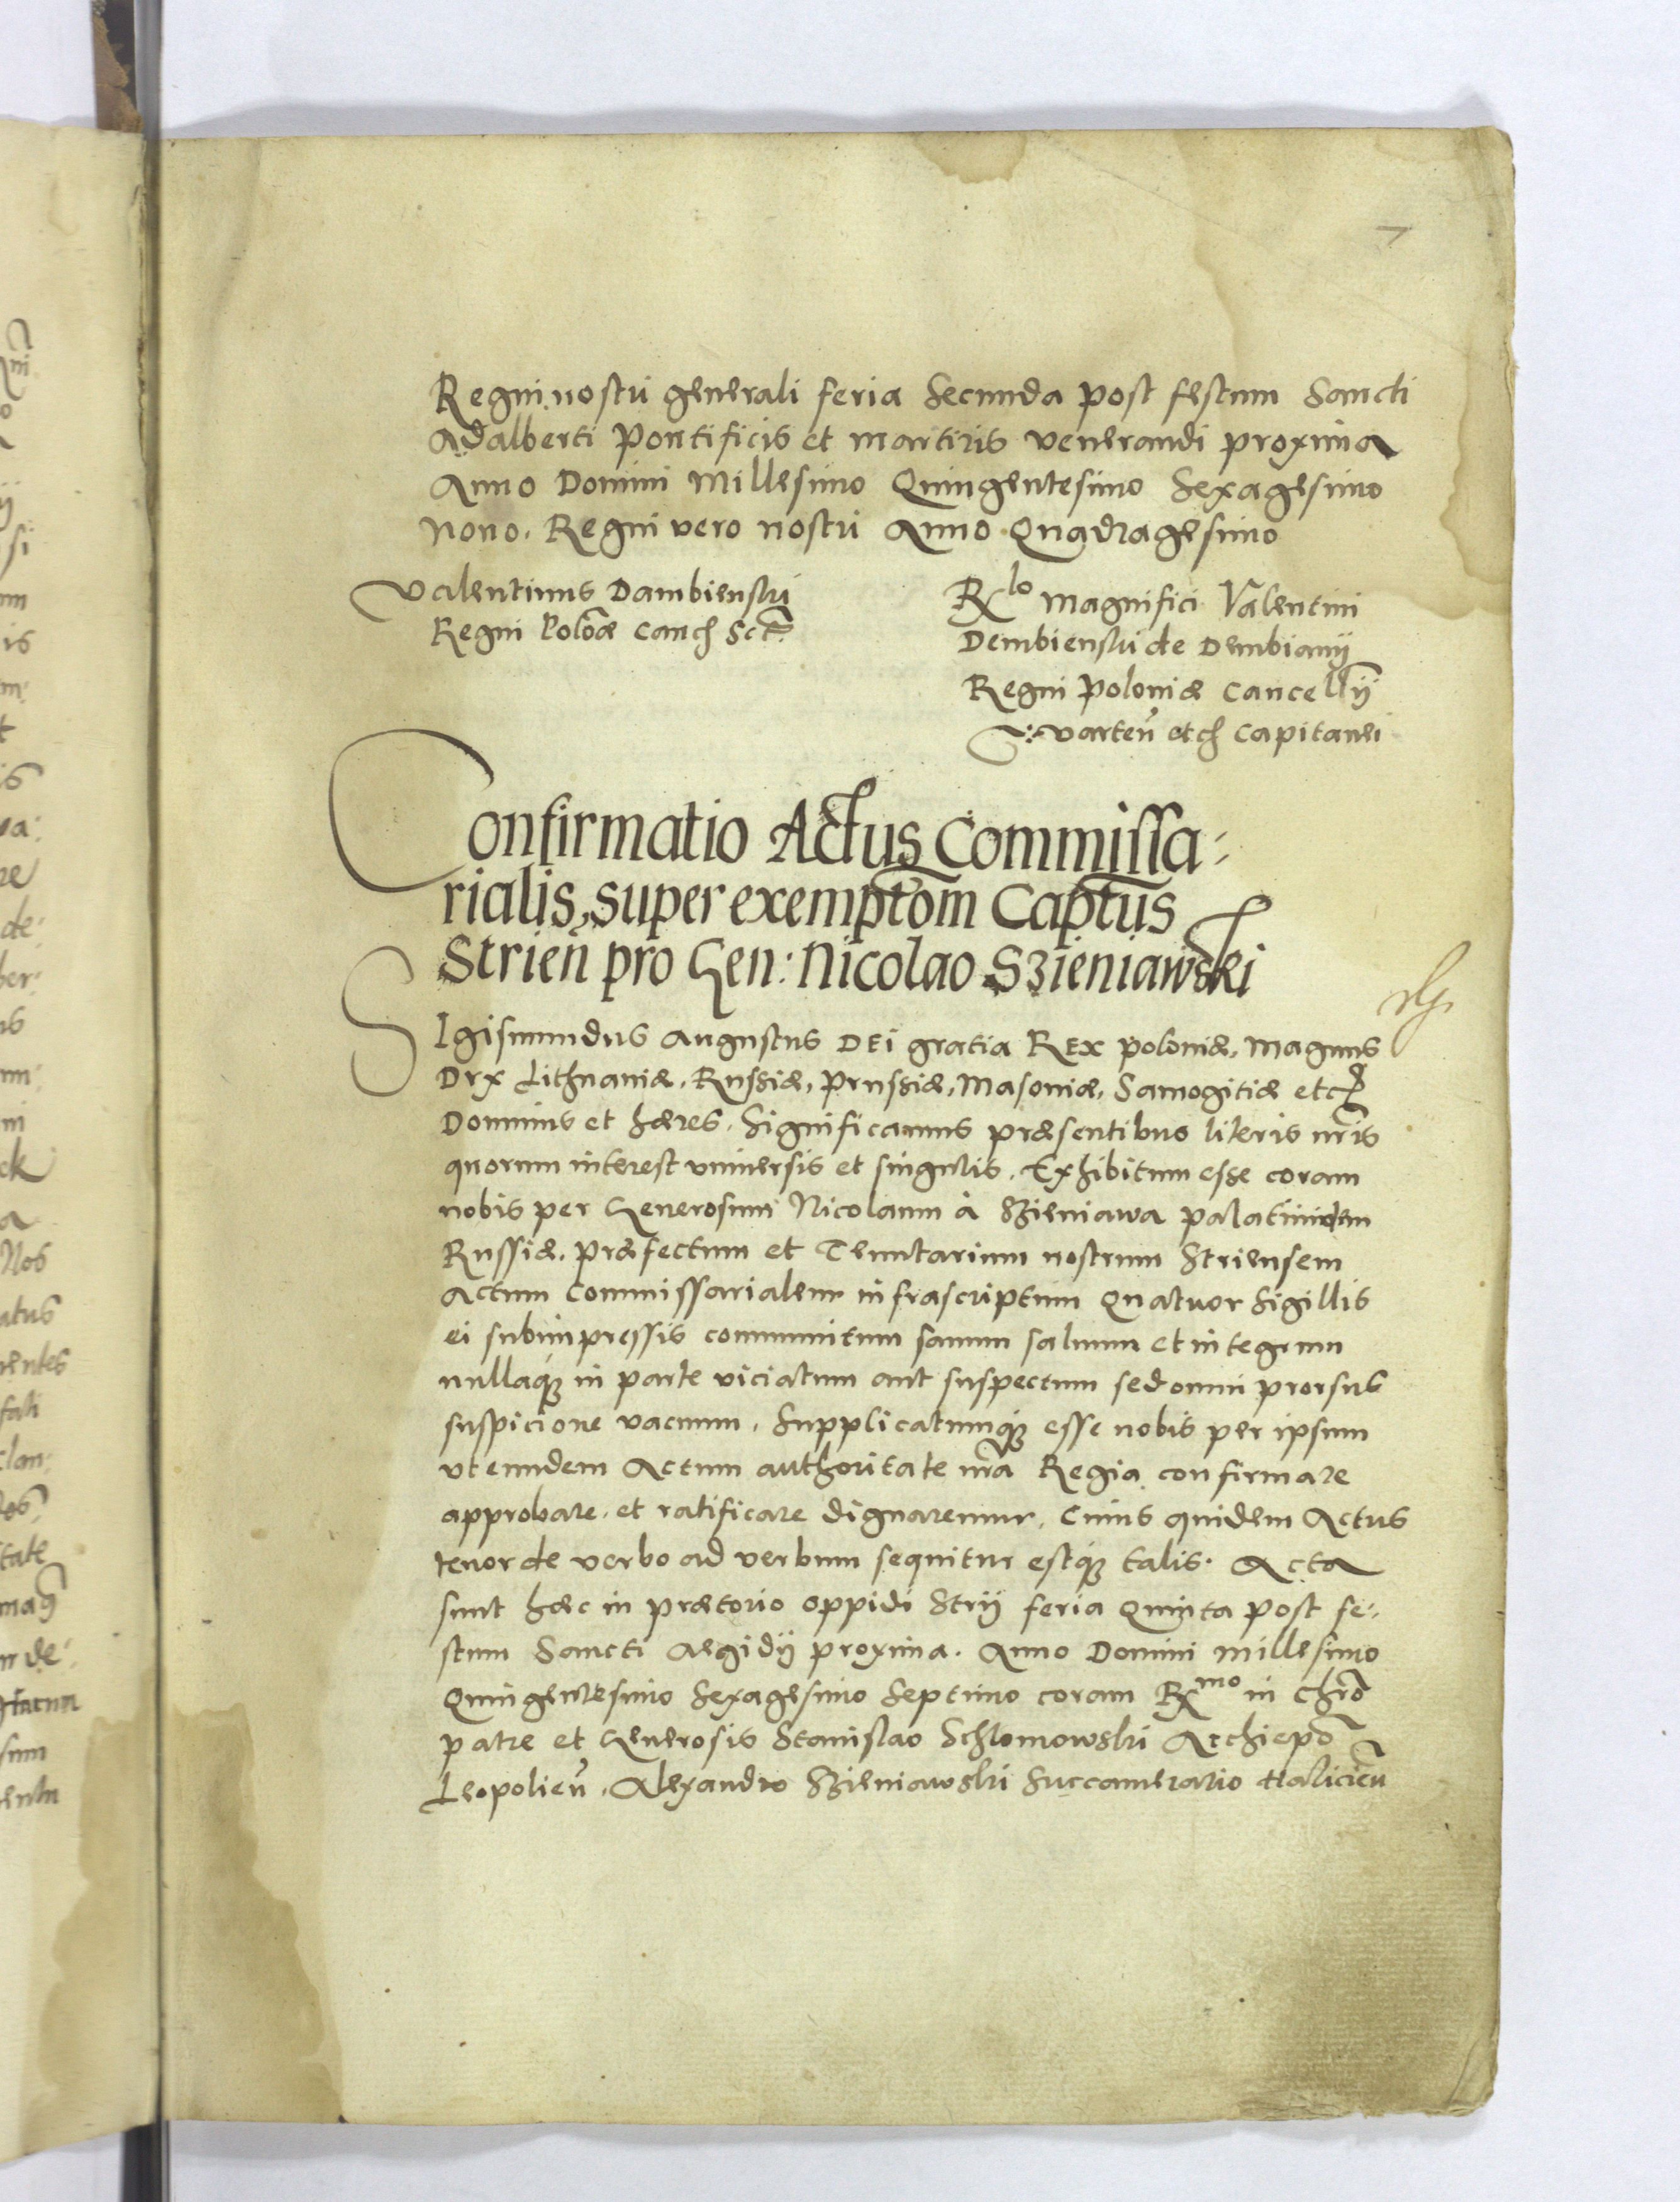 7
Regni nostri generali feria Secunda post festum Sancti
Adalberti Pontificis et martiris venerandi proxima
Anno Domini Millesimo Quingentesimo Sexagesimo
Nono. Regni vero nostri Anno Quadragesimo
Valentinus Dambienski
Regni Polonæ Canc Sct
Rlo Magnifici Valentini
Dembienski de Dembiany
Regni Poloniæ Cancellii
Warten etc Capitanei
Confirmatio Actus Commissa-
rialis, super exemptom Captus
Strien pro Gen: Nicolao Szieniawski
SIgismundus Augustus DEI gratia REX Poloniæ, Magnus
Dux Lithuaniæ, Russiæ, Prussiæ, Masoniæ, Samogitiæ etc
Dominus et hæres. Significamus præsentibus literis nris
quorum interest universis et singulis. Exhibitum esse coram
nobis per Generosum Nicolaum à Szieniawa palatinidem
Russiæ. Præfectum et Tenutarium nostrum Striensem
Actum Commissarialem infrascriptum Quatuor Sigillis
ei subimpressis communitum sanum saluum et integrum
nullaque in parte viciatum aut suspectum sed omni prorsus
suspicione vacuum. Supplicatumque esse nobis per ipsum
ut eundem Actum authoritate nra Regia confirmare
approbare et ratificare dignaremur. Cuius quidem Actus
tenor de verbo ad verbum sequitur estque talis. Acta
sunt hæc in prætorio oppidi Strij feria Quinta post fe-
stum Sancti Aegidij proxima. Anno Domini Millesimo
Quingentesimo Sexagesimo Septimo coram Rmo in Chro
patre et Generosis Stanislao Schlomowski Archiepo
Leopolien. Alexandro Szieniawski Succamerario Halicien